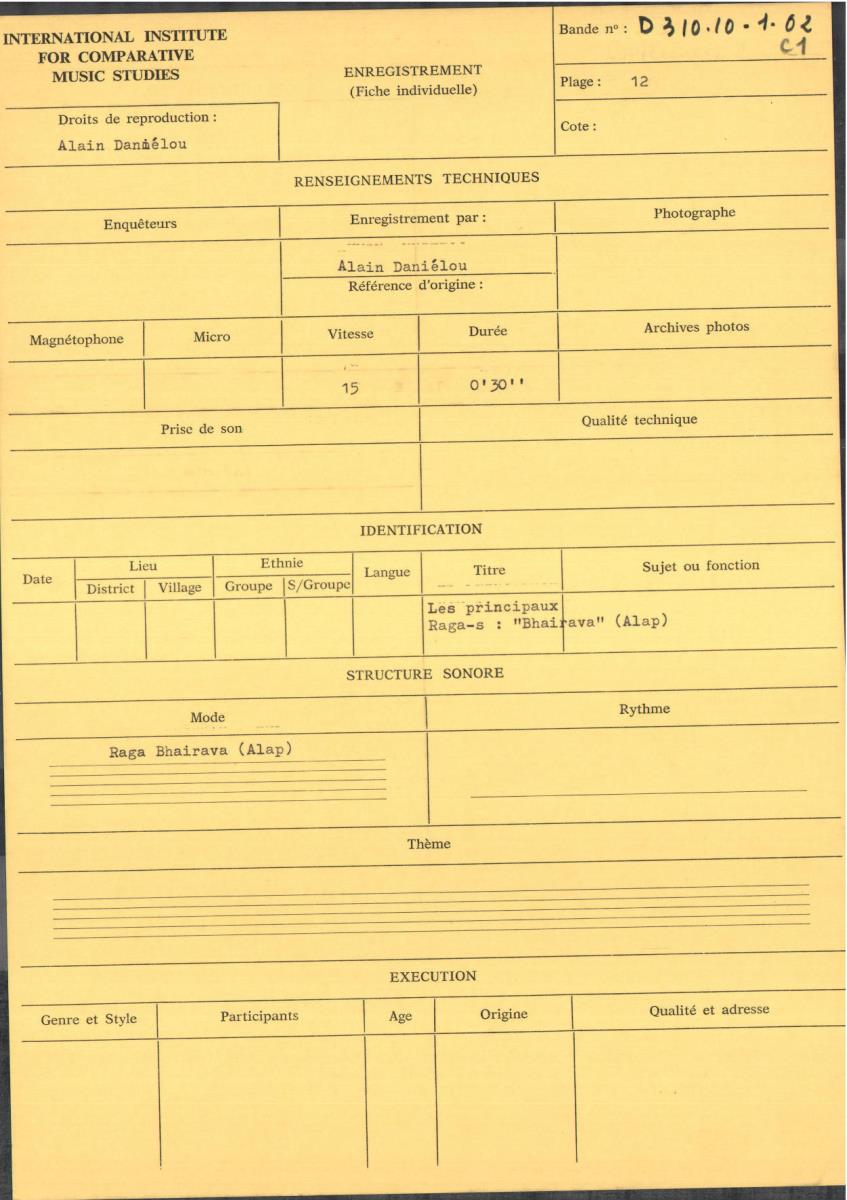 INTERNATIONAL INSTITUTE
FOR COMPARATIVE
MUSIC STUDIES
ENREGISTREMENT
(Fiche individuelle)
Bande nº : D 310.10 - 1. 02
C1
Plage : 12
Cote :
Droits de reproduction :
Alain Daniélou
RENSEIGNEMENTS TECHNIQUES
Enquêteurs
Enregistrement par :
Photographe
Alain Daniélou
Référence d'origine :
Magnétophone
Micro
Vitesse
Durée
Archives photos
15
0'30''
Prise de son
Qualité technique
IDENTIFICATION
Date
Lieu
Ethnie
Langue
Titre
Sujet ou fonction
District
Village
Groupe
S/Groupe
Les principaux
Raga-s : "Bhairava" (Alap)
STRUCTURE SONORE
Mode
Rythme
Raga Bhairava (Alap)
Thème
EXECUTION
Genre et Style
Participants
Age
Origine
Qualité et adresse